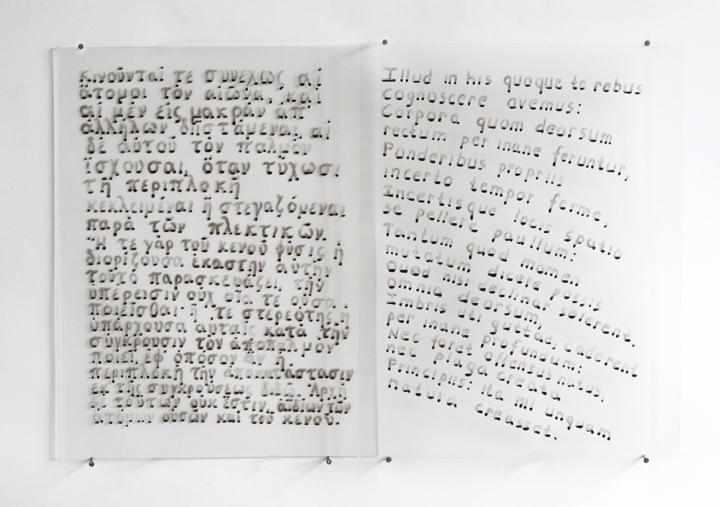 κινοῦνταί τε συνεχῶς αἱ
ἄτομοι τὸν αἰῶνα, καὶ
αἱ μὲν εἰς μακρὰν ἀπ'
ἀλλήλων διιστάμεναι, αἱ
δὲ αὐτοῦ τὸν παλμὸν
ἴσχουσαι, ὅταν τύχωσι
τῇ περιπλοκῇ
κεκλειμέναι ἢ στεγαζόμεναι
παρὰ τῶν πλεκτικῶν.
Ἥ τε γὰρ τοῦ κενοῦ φύσις ἡ
διορίζουσα ἑκάστην αὐτὴν
τοῦτο παρασκευάζει, τὴν
ὑπέρεισιν οὐχ οἵα τε οὖσα
ποιεῖσθαι· ἥ τε στερεότης ἡ
ὑπάρχουσα αὐταῖς κατὰ τὴν
σύγκρουσιν τὸν ἀποπαλμὸν
ποιεῖ, ἐφ' ὁπόσον ἂν ἡ
περιπλοκὴ τὴν ἀποκατάστασιν
ἐκ τῆς συγκρούσεως διδῷ. Ἀρχὴ
δὲ τούτων οὐκ ἔστιν, ἀιδίων τῶν
ἀτόμων οὐσῶν καὶ τοῦ κενοῦ.
Illud in his quoque te rebus
cognoscere avemus:
Corpora quom deorsum
rectum per inane feruntur,
Ponderibus propriis
incerto tempor ferme,
Incertisque locis spatio
se pellere paullum:
Tantum quod momen
mutatum dicere possis
Quod nisi declinar solerent,
omnia deorsum,
Imbris uti guttae, caderent
per inane profundum:
Nec foret offensus natus,
nec plaga creata
Principiis: ita nil unquam
natura creasset.